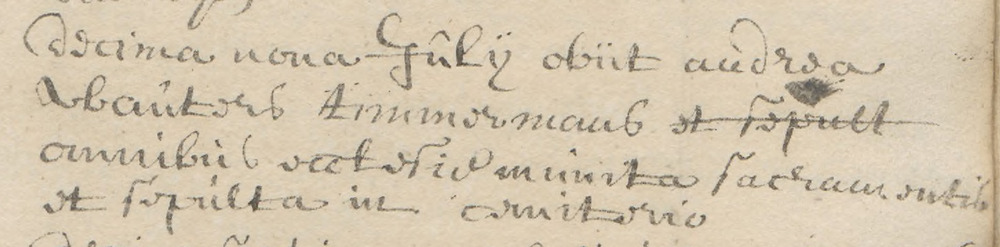 decima nona July obiit audrea
Wbauters timmermans et sepult
omnibus ecclesie munita sacramentis
et sepulta in cemiterio